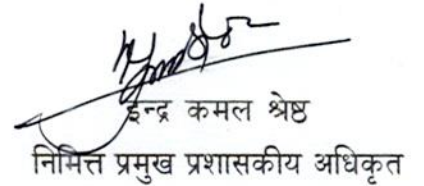 इन्द्र कमल श्रेष्ठ
निमित्त प्रमुख प्रशासकीय अधिकृत